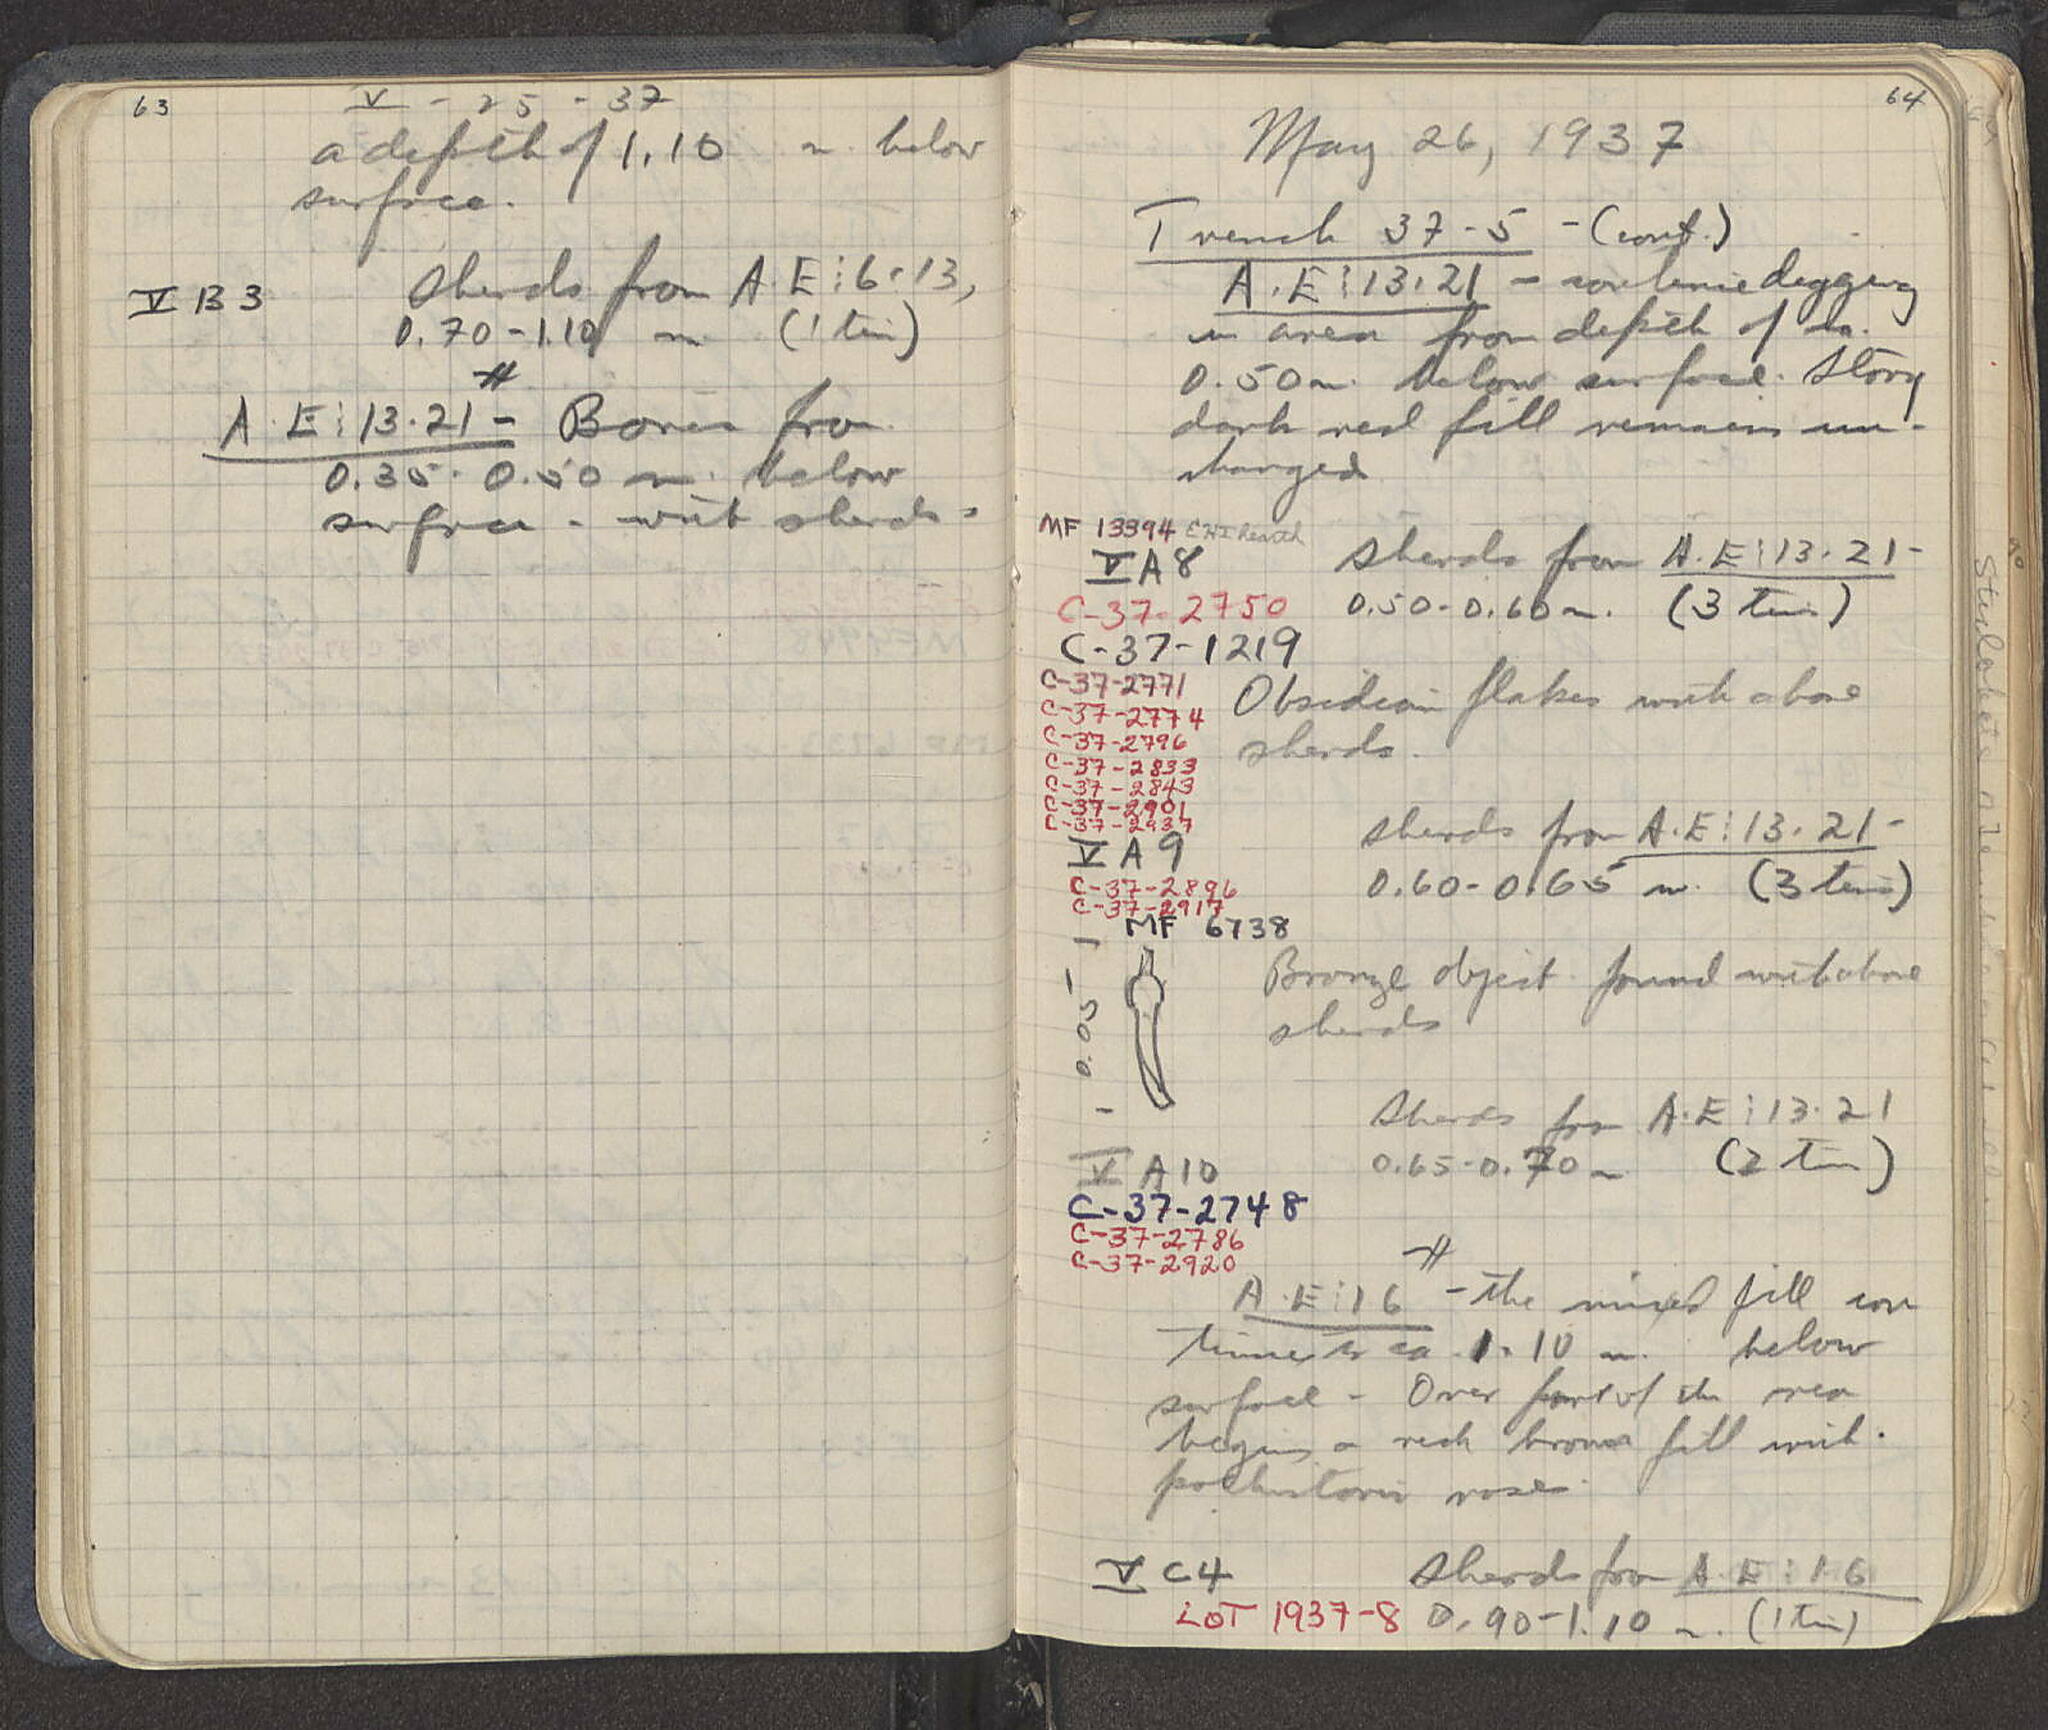 63
V - 25 - 37
a depth of 1.10 m. below
surface.
V B 3
Sherds from A.E⋮6-13,
0.70-1.10 m. (1 tin)
#
A.E⋮13.21 - Bones from
0.35-0.50 m. below
surface - with sherds.
64
May 26, 1937
Trench 37-5 - (cont.)
A.E⋮13.21 - continue digging
in area from depth of
0.50 m. below surface. Stony
dark red fill remains un-
changed
MF 13394 EHI hearth
V A 8
Sherds from A.E⋮13.21-
0.50-0.60 m. (3 tins)
C-37-2750
C-37-1219
C-37-2771
C-37-2774
C-37-2796
C-37-2833
C-37-2843
C-37-2901
C-37-2937
Obsidian flakes with above
sherds.
V A 9
Sherds from A.E⋮13.21-
0.60-0.65 m. (3 tins)
C-37-2896
C-37-2917
MF 6738
0.05
Bronze object found with above
sherds
V A 10
Sherds from A.E⋮13.21
0.65-0.70 m (2 tins)
C-37-2748
C-37-2786
C-37-2920
#
A.E⋮16 - the mixed fill con
tinues to ca. 1.10 m. below
surface - Over part of the area
begins a red brown fill with
prehistoric vases.
V C 4
Sherds from A.E⋮16
LOT 1937-8
0.90-1.10 m. (1 tin)